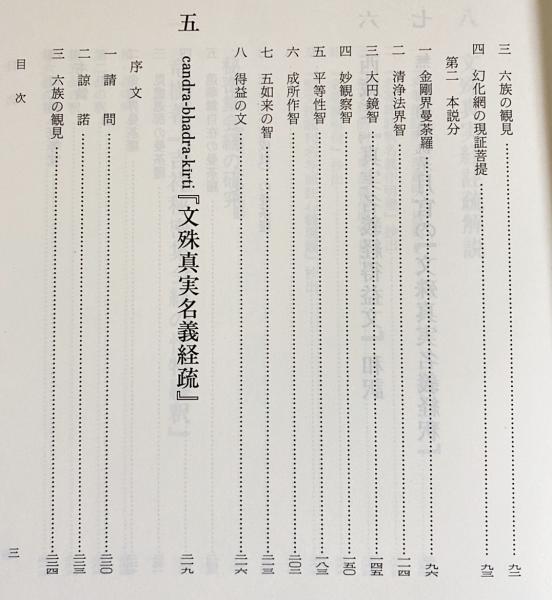 三 六族の観見……九二
四 幻化網の現証菩提……九三
第二 本説分
一 金剛界曼荼羅……九六
二 清浄法界智……一一四
三 大円鏡智……一四五
四 妙観察智……一五〇
五 平等性智……一八三
六 成所作智……二〇二
七 五如来の智……二一三
八 得益の文……二一六
五 candra-bhadra-kirti『文殊真実名義経疏』……二一九
序文
一 請問……二二〇
二 諒諾……二二三
三 六族の観見……二二四
目次
三